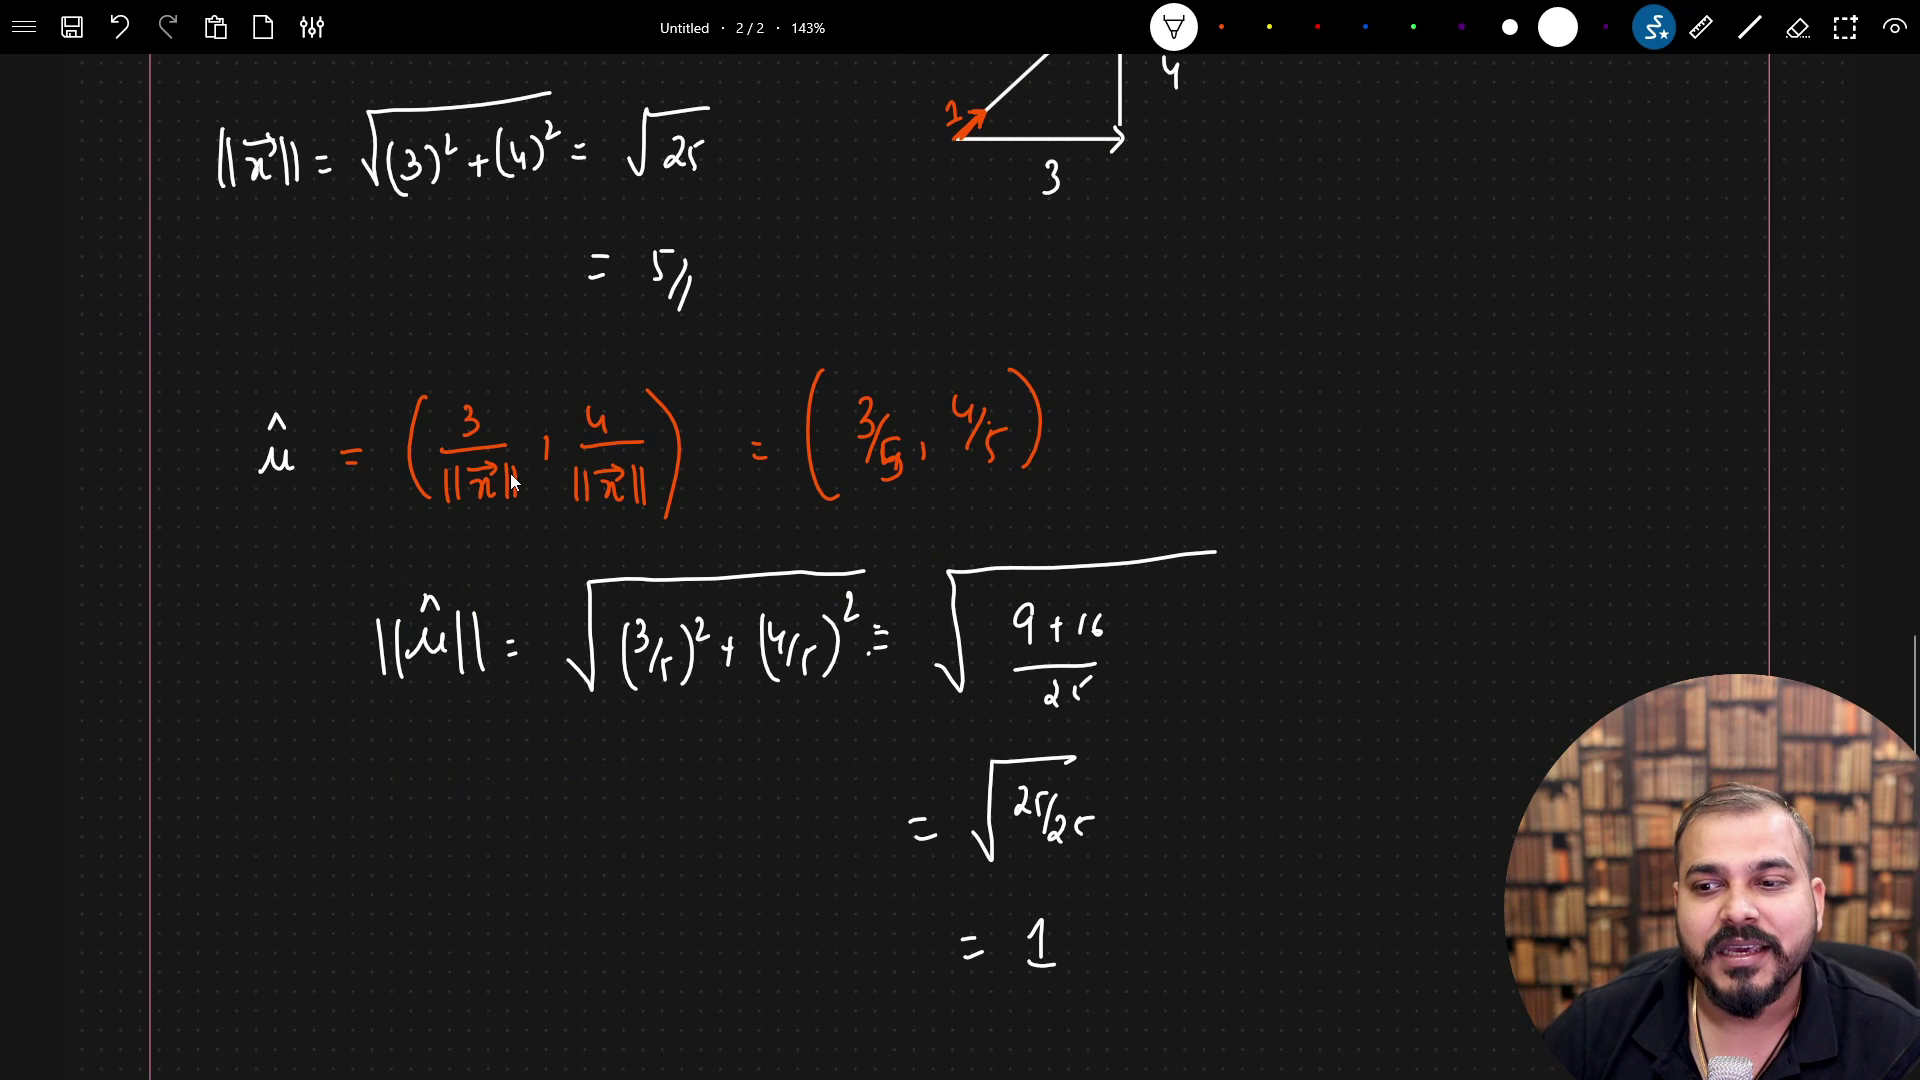 Untitled · 2 / 2 · 143%
4
1
||x⃗|| = √((3)² + (4)²) = √25
3
= 5//
û = (3/||x⃗|| , 4/||x⃗||) = (3/5 , 4/5)
||û|| = √((3/5)² + (4/5)²) = √((9 + 16)/25)
= √(25/25)
= 1